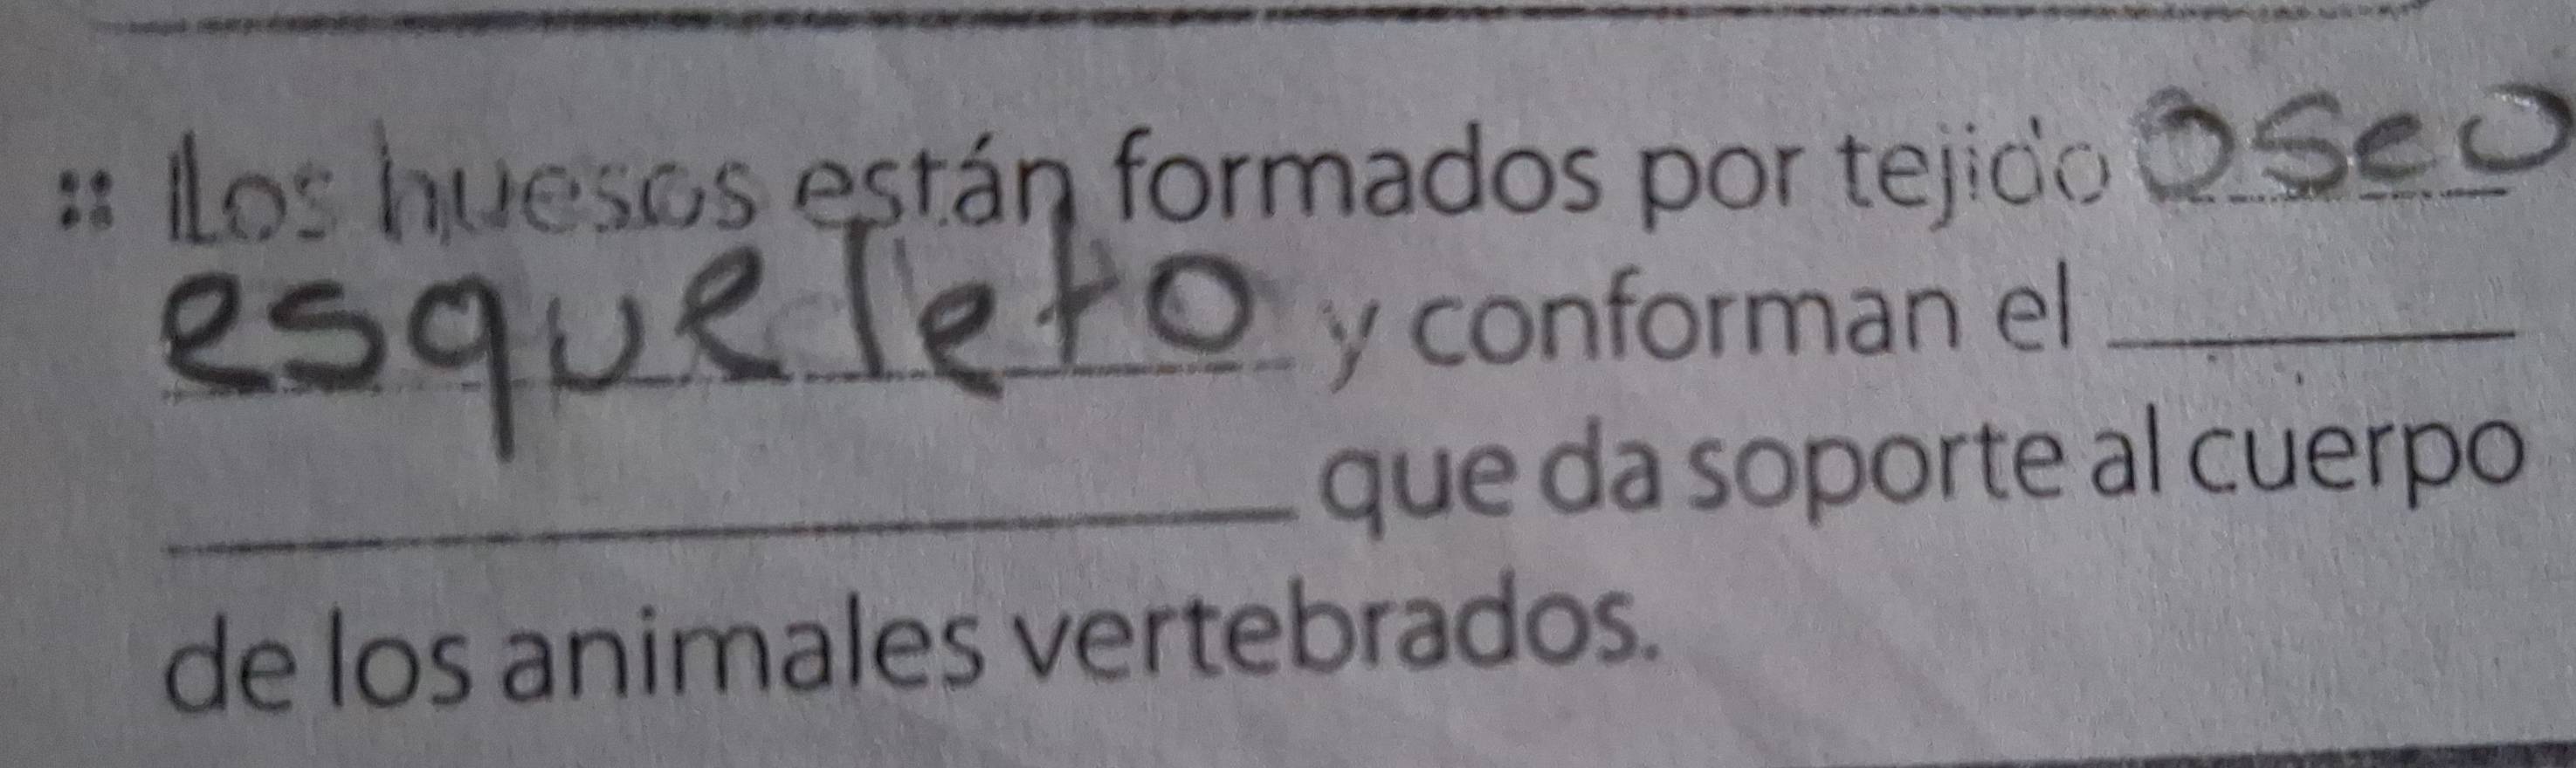 :: Los huesos están formados por tejido oseo
esqueleto y conforman el ________
________ que da soporte al cuerpo
de los animales vertebrados.